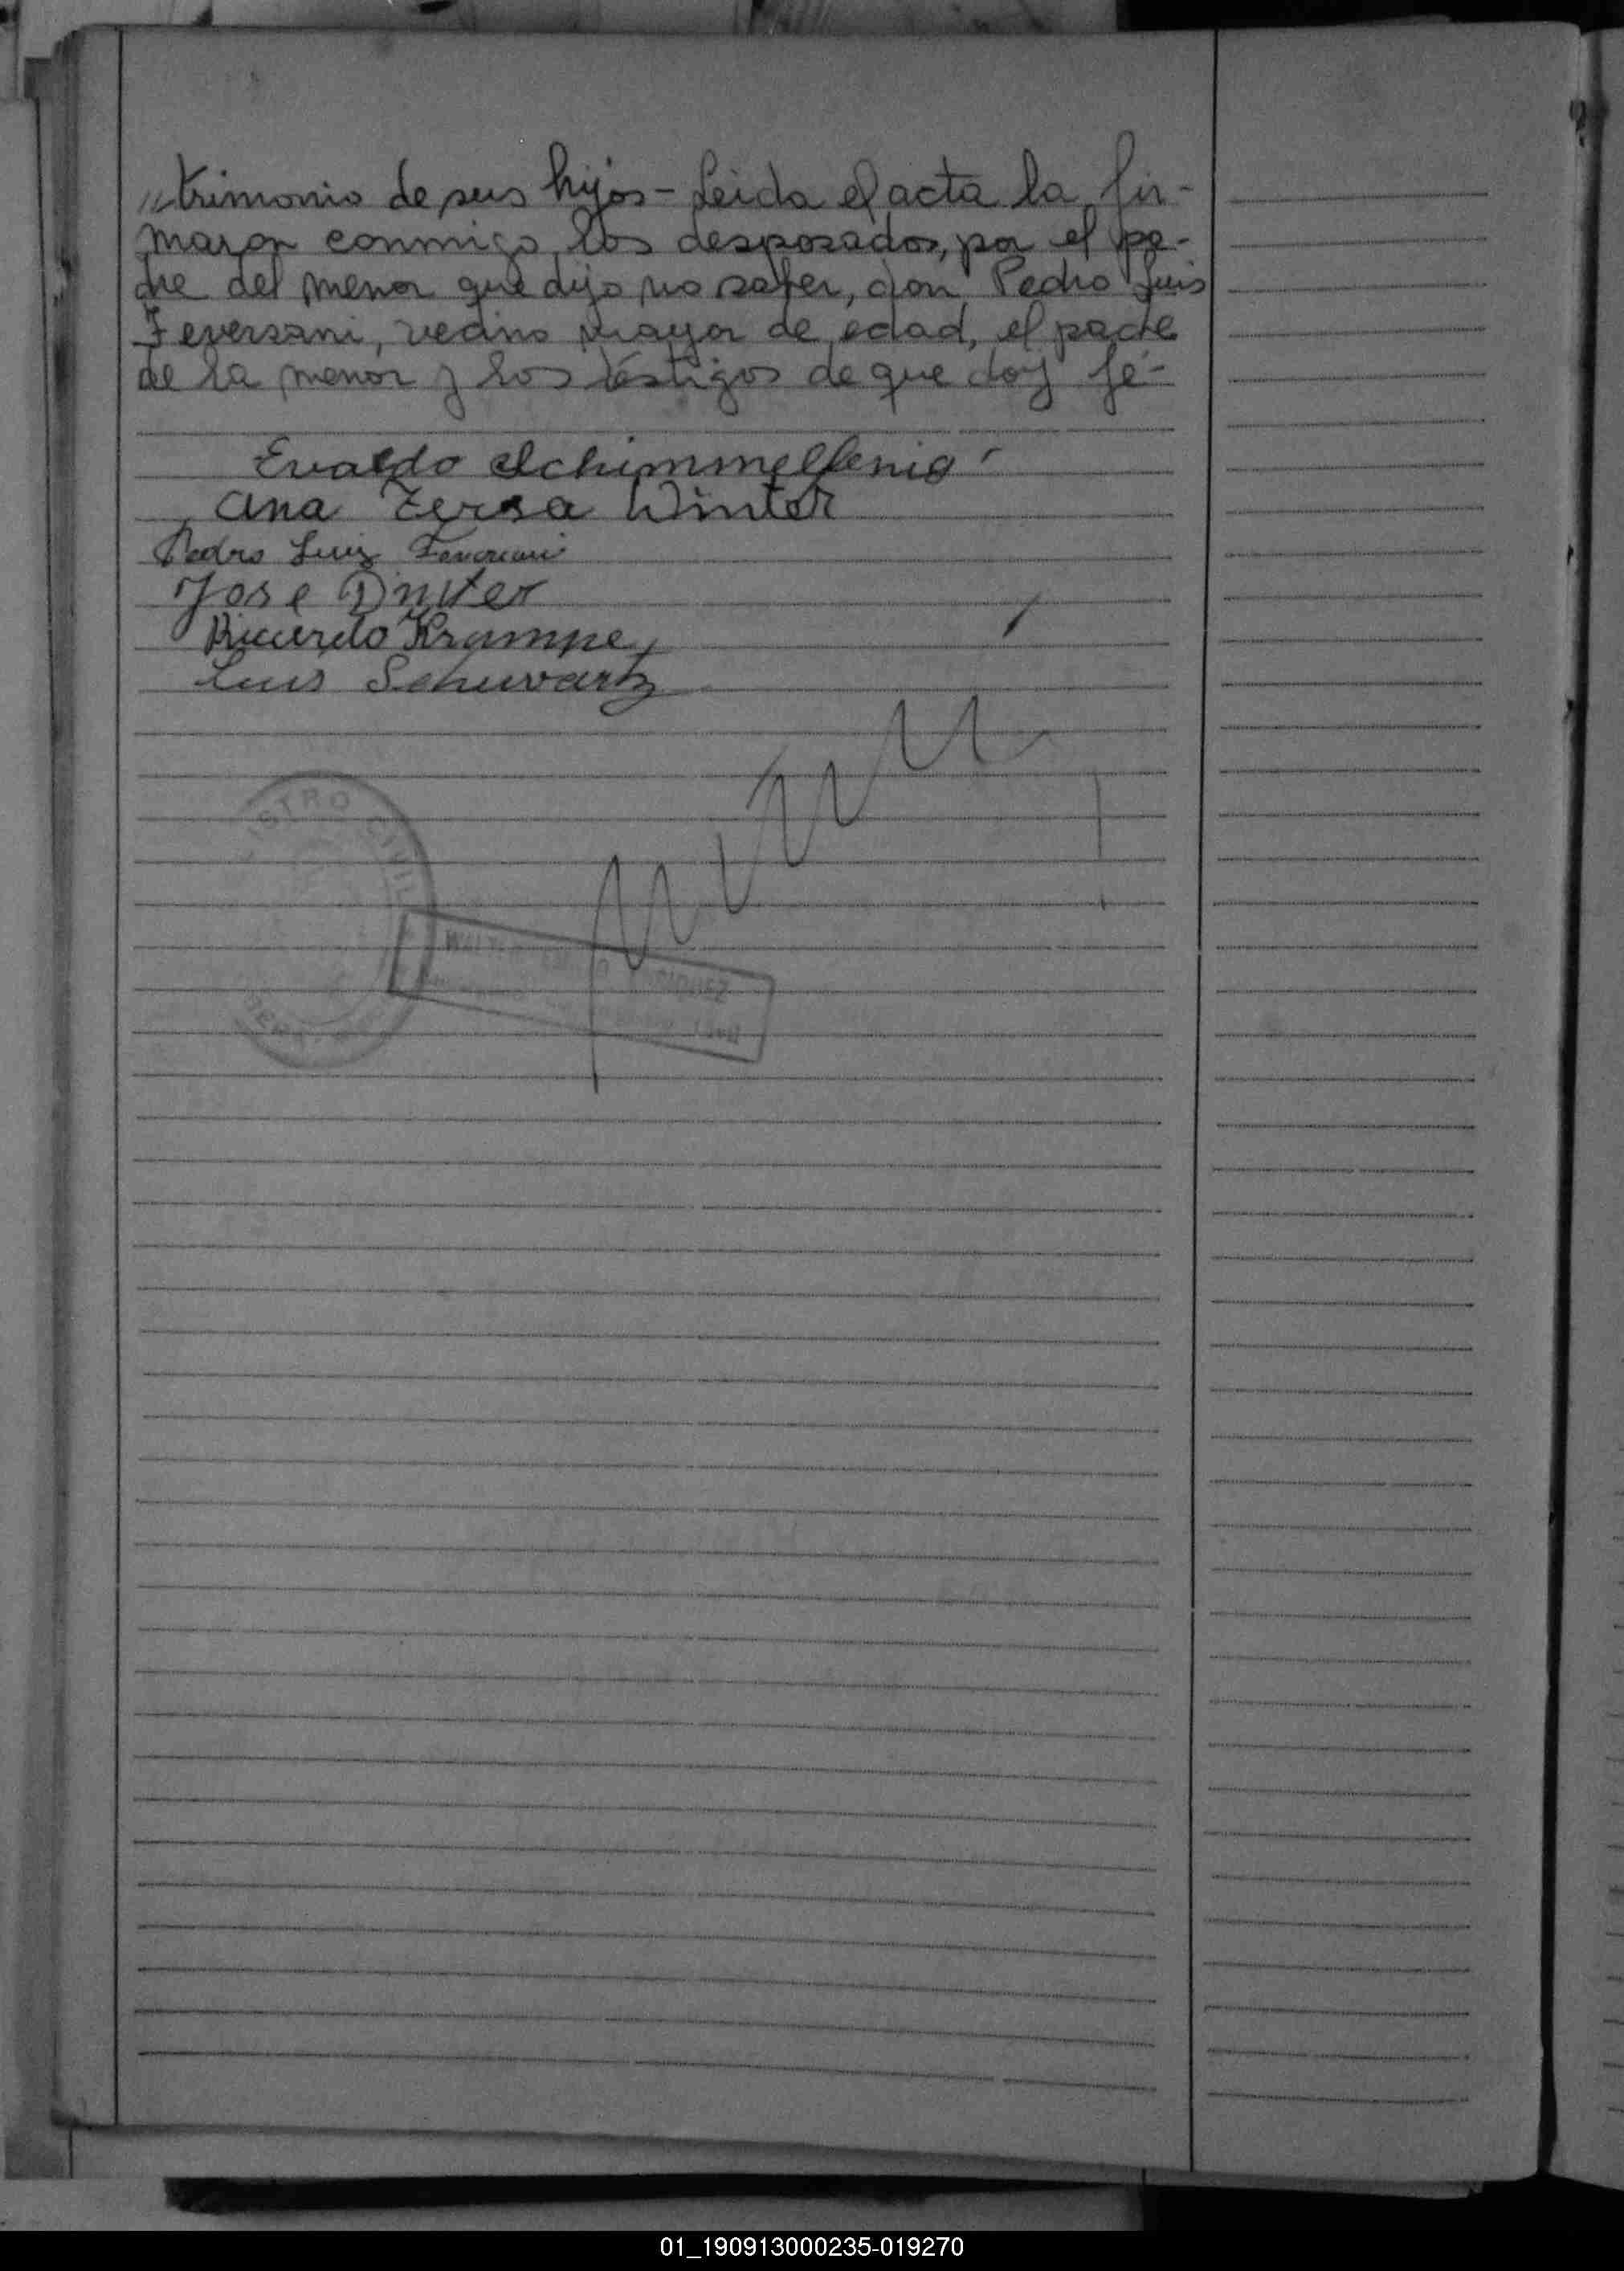 "trimonio de sus hijos - Leida el acta la fir-
maron conmigo los desposados, por el pa-
dre del menor que dijo no saber, don Pedro Luis
Feversani, vecino mayor de edad, el padre
de la menor y los téstigos de que doy fé-
Evaldo Schimmelfenig
Ana Tersa Winter
Pedro Luis Feversani
Jose Winter
Ricardo Krampe
Luis Schuvartz
ISTRO CIVIL
01_190913000235-019270